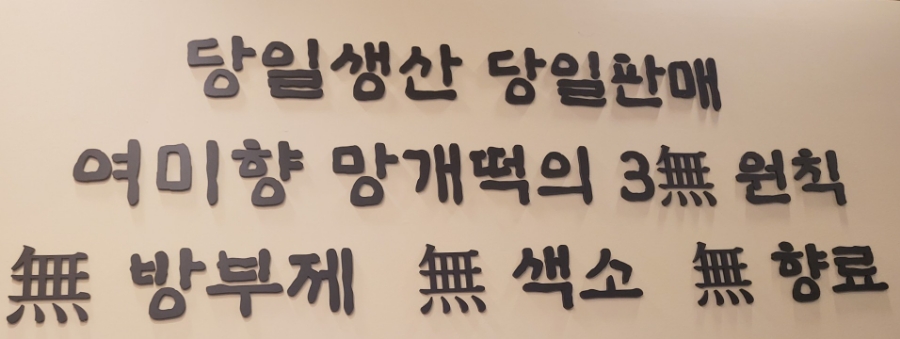 당일생산 당일판매
여미향 망개떡의 3無 원칙
無 방부제 無 색소 無 향료